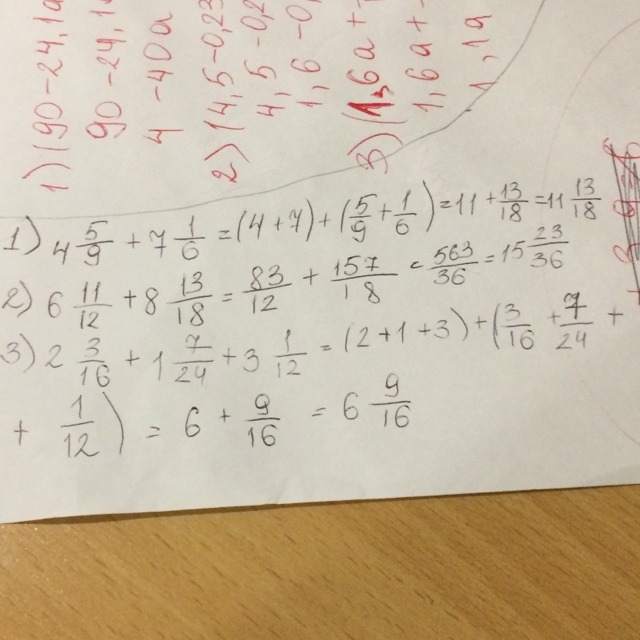 1) (90-24,1a
90-24,1
4-40a
2) (4,5-0,23
4,5-0,2
1,6-0,
3) (1,6a+
1,6a+
1,1a
1) 4 5/9 + 7 1/6 = (4+7) + (5/9 + 1/6) = 11 + 13/18 = 11 13/18
2) 6 11/12 + 8 13/18 = 83/12 + 157/18 = 563/36 = 15 23/36
3) 2 3/16 + 1 7/24 + 3 1/12 = (2+1+3) + (3/16 + 7/24 +
+ 1/12) = 6 + 9/16 = 6 9/16